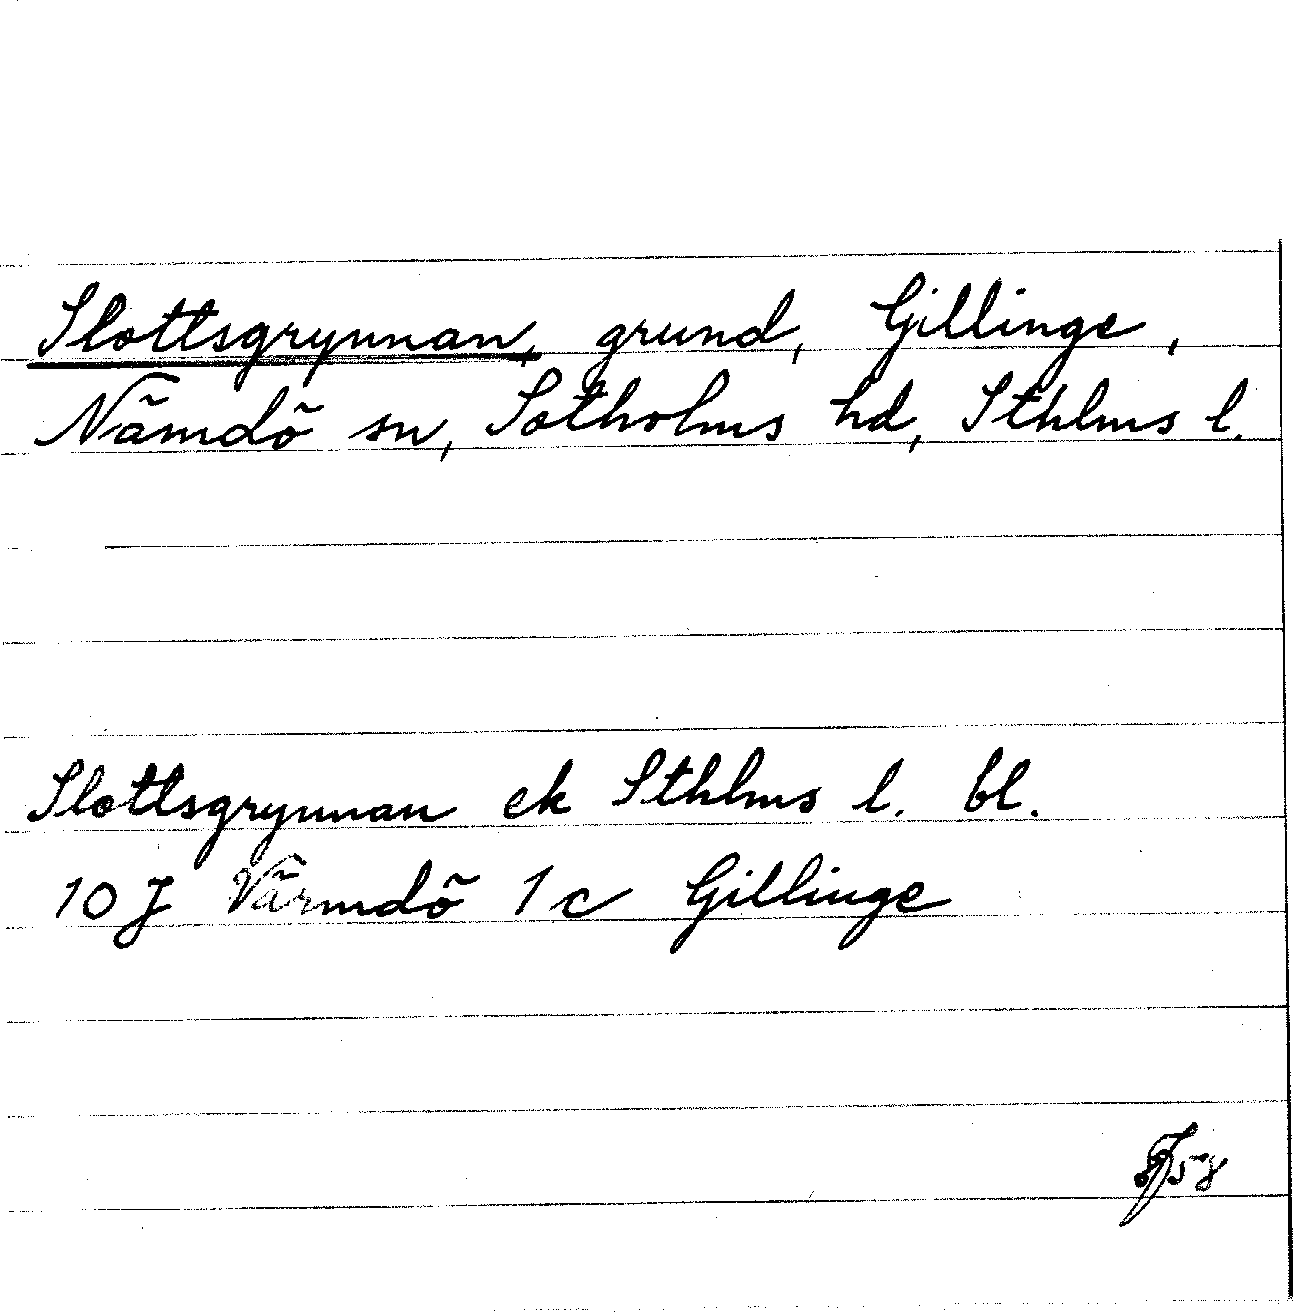 Slottsgrynnan, grund, Gillinge,
Nämdö sn, Sotholms hd, Sthlms l.
Slottsgrynnan ek Sthlms l. bl.
10 J Värmdö 1 c Gillinge
58